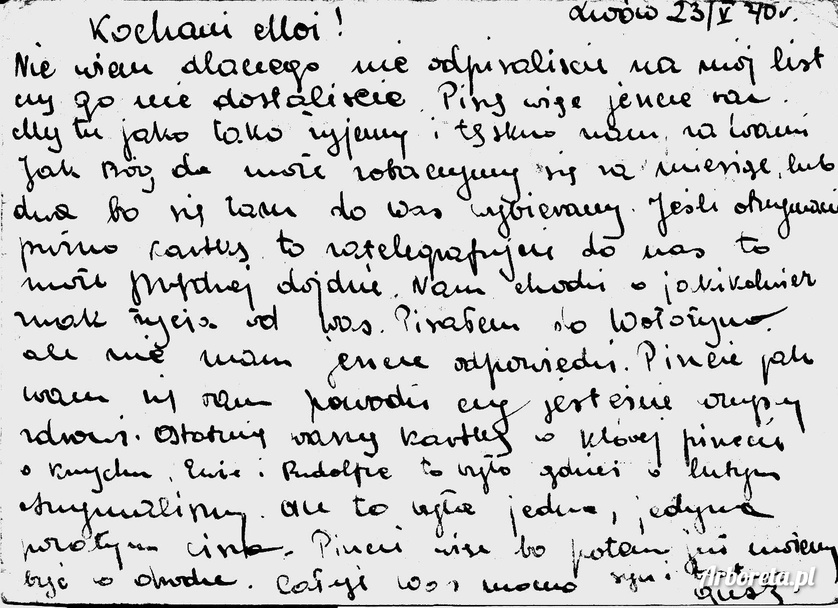 Lwów 23/V 40r.
Kochani Moi!
Nie wiem dlaczego nie odpisaliście na mój list
czy go nie dostaliście. Piszę więc jeszcze raz.
My tu jako tako żyjemy i tęskno nam za Wami
Jak Bóg da może zobaczymy się za miesiąc, lub
dwa bo się tam do Was wybieramy. Jeśli otrzymacie
pismo kartkę to zatelegrafujcie do nas to
może prędzej dojdzie. Nam chodzi o jakikolwiek
znak życia od Was. Pisałem do Wołożyna
ale nie mam jeszcze odpowiedzi. Piszcie jak
wam się tam powodzi czy jesteście wszyscy
zdrowi. Ostatnią waszą kartkę w której piszecie
o Ewie i Rudolfie to było gdzieś w lutym
otrzymaliśmy. Ale to była jedna, jedyna
poza tym cisza. Piszcie więc bo potem już możemy
być w drodze. Całuję Was mocno syn i
Arboreta.pl